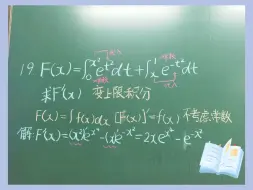 19. F(x)=∫₀^{x²}e^{-t²}dt+∫ₓ¹e^{-t²}dt
求F'(x) 变上限积分
F(x)=∫f(x)dx [F(x)]'=f(x) 不考虑常数
解 F'(x)=(x²)'e^{-x⁴}-(x)'e^{-x²}=2xe^{-x⁴}-e^{-x²}